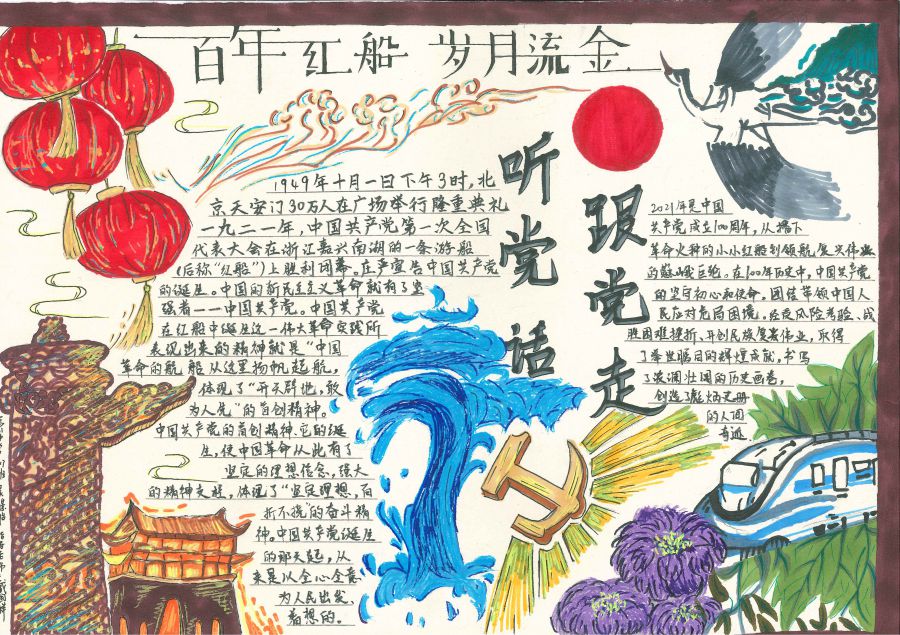 百年红船 岁月流金
听党话
跟党走
1949年十月一日下午3时,北
京天安门30万人在广场举行隆重典礼
一九二一年,中国共产党第一次全国
代表大会在浙江嘉兴南湖的一条游船
(后称“红船”)上胜利闭幕。庄严宣告中国共产党
的诞生。中国的新民主主义革命就有了坚
强者——中国共产党。中国共产党
在红船中诞生这一伟大革命实践所
表现出来的精神就是“中国
革命的航船从这里扬帆起航,
体现了“开天辟地,敢
为人先”的首创精神。
中国共产党的首创精神,它的诞
生,使中国革命从此有了
坚定的理想信念,强大
的精神支柱,体现了“坚定理想,百
折不挠”的奋斗精
神。中国共产党诞生
的那天起,从
来是以全心全意
为人民出发
着想的。
2021年是中国
共产党成立100周年,从播下
革命火种的小小红船到领航复兴伟业
的巍峨巨轮。在100年历史中,中国共产党
的坚守初心和使命,团结带领中国人
民应对危局困境,经受风险考验、战
胜困难挫折,开创民族复兴伟业,取得
了举世瞩目的辉煌成就,书写
了波澜壮阔的历史画卷,
创造了彪炳史册
的人间
奇迹.